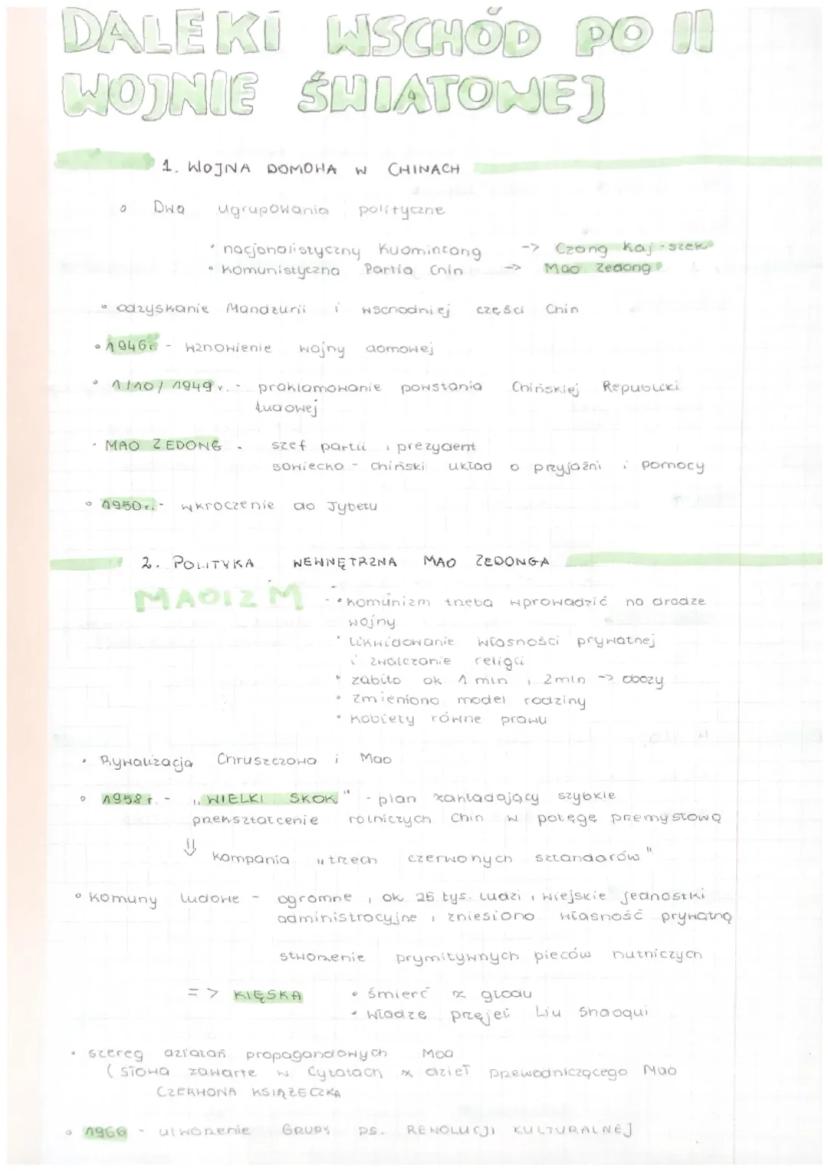 DALEKI WSCHÓD PO II
WOJNIE ŚWIATOWEJ
1. WOJNA DOMOWA W CHINACH
Dwa ugrupowania polityczne
• nacjonalistyczny Kuomintang -> Czang Kaj-szek
• Komunistyczna Partia Chin -> Mao Zedong
• odzyskanie Mandżurii i wschodniej części Chin
• 1946r. - wznowienie wojny domowej
• 1/10/1949r. - proklamowanie powstania Chińskiej Republiki
Ludowej
• MAO ZEDONG - szef partii i prezydent
sowiecko - chiński układ o przyjaźni i pomocy
• 1950r. - wkroczenie do Tybetu
2. POLITYKA WEWNĘTRZNA MAO ZEDONGA
MAOIZM - • komunizm trzeba wprowadzić na drodze
wojny
• likwidowanie własności prywatnej
i zwalczanie religii
• zabito ok 1 mln, 2mln -> obozy
• zmieniono model rodziny
• kobiety równe prawu
• Rywalizacja Chruszczowa i Mao
• 1958r. - "WIELKI SKOK" - plan zakładający szybkie
przekształcenie rolniczych Chin w potęgę przemysłową
⇓ kampania "trzech czerwonych sztandarów"
• Komuny ludowe - ogromne, ok. 26 tys. ludzi, wiejskie jednostki
administracyjne, zniesiono własność prywatną
stworzenie prymitywnych pieców hutniczych
=> KLĘSKA • śmierć z głodu
• władze przejęł Liu Shaoqui
• szereg działań propagandowych Mao
(słowa zawarte w Cytatach z dzieł Przewodniczącego Mao
CZERWONA KSIĄŻECZKA
• 1966 - utworzenie GRUPY DS. REWOLUCJI KULTURALNEJ